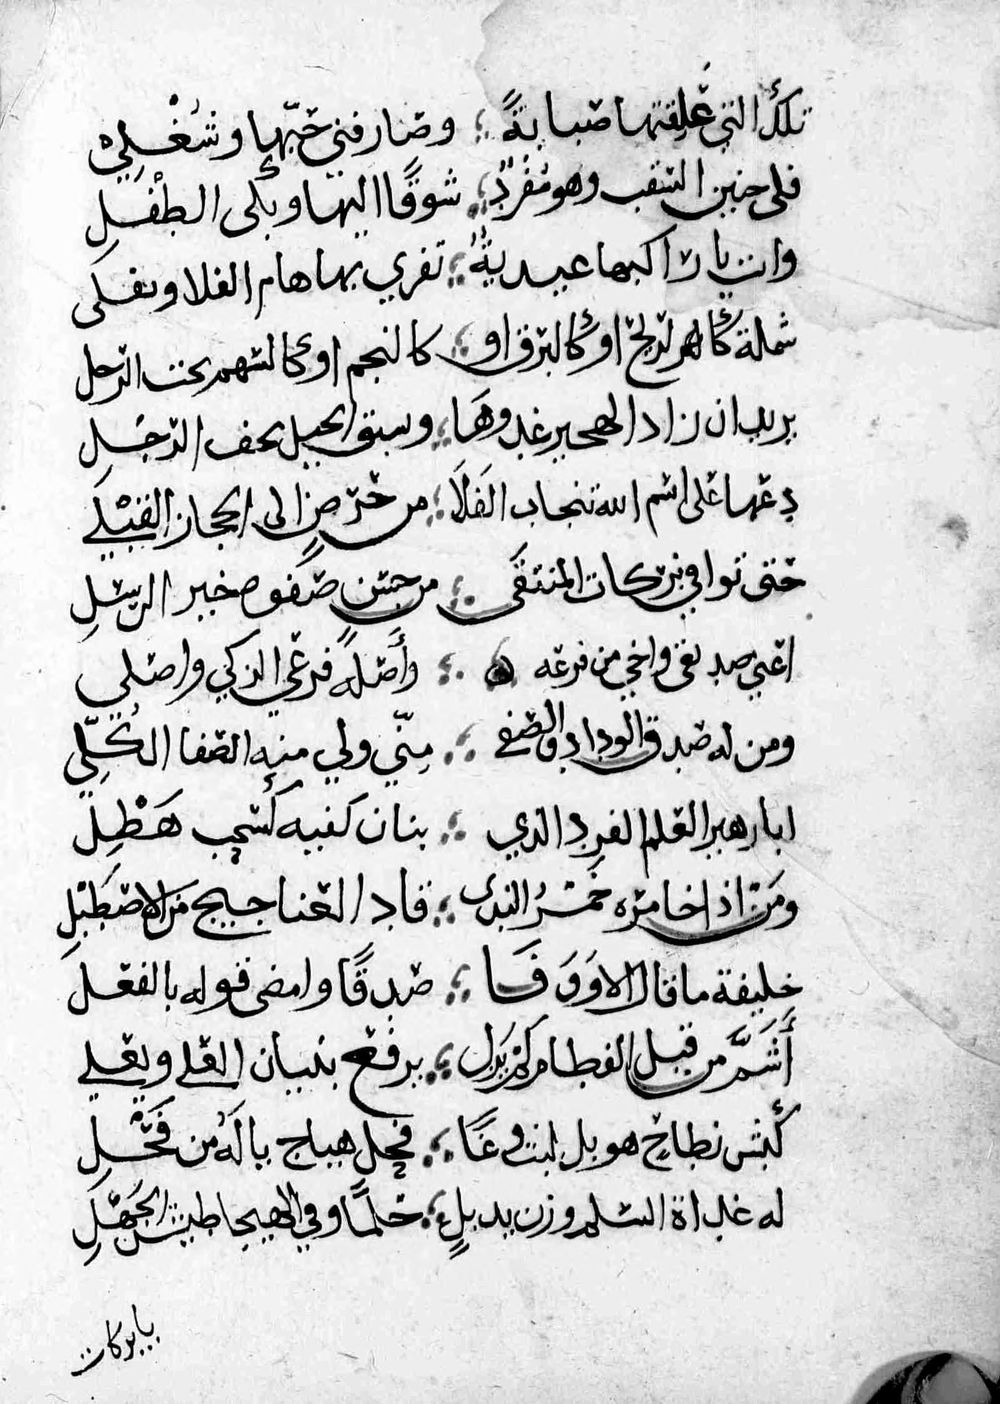 تلك التي عُلِقتها صبابةً ؛ وصار في حبّها وشُغْلِي
فلي حنين السقب وهو مُفْردٌ ؛ شوقًا اليها وبكى الطِفْلِ
وانت يا راكبها عيديةً ؛ تفري بها هام الفلا وتفلي
شملة كالهِرِ او كالبرق او ؛ كالنجم او كالسهم تحت الرحل
يريد ان زاد الهجير غدوها ؛ وسبق الخيل بخف الرجلِ
دعها على اسم الله تنجاب الفَلَا ؛ من حرّضٍ الى الحجاز القبْلي
حتى توافي بركات المنتقى ؛ من حسن صفوة خير الرسلِ
اعني صديقي واخي من فرعه ؛ وأصله فرعي الزكي واصلي
ومن له صدق الوداد والصفى ؛ مِنّي ولي منه الصفا الكُلِّي
ابا زهير العلم الفرد الذي ؛ بنان كفيه كسُحب هَطْلِ
ومَن اذا خامره خَمْرُ الندى ؛ قاد العناجيج من الاصْطَبْلِ
خليفة ما قال الا وَوَفَا ؛ صدقًا وامضى قوله بالفعل
أشَمَّ من قبل الفطام لم يزل ؛ يرفع بنيان العلي ويعلي
كبش نطاح هو بل ليث وغًا ؛ فحل هياج يا لَهُ من فَحْلِ
له غداة السلم وزن يذبلٍ ؛ حلمًا وفي الهيجا طيش الجَهْلِ
يا بركات